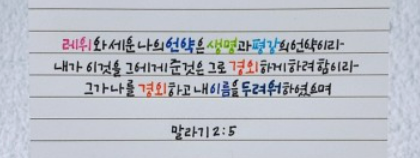 레위와 세운 나의 언약은 생명과 평강의 언약이라
내가 이것을 그에게 준것은 그로 경외하게 하려 함이라
그가 나를 경외하고 내 이름을 두려워하였으며
말라기 2:5